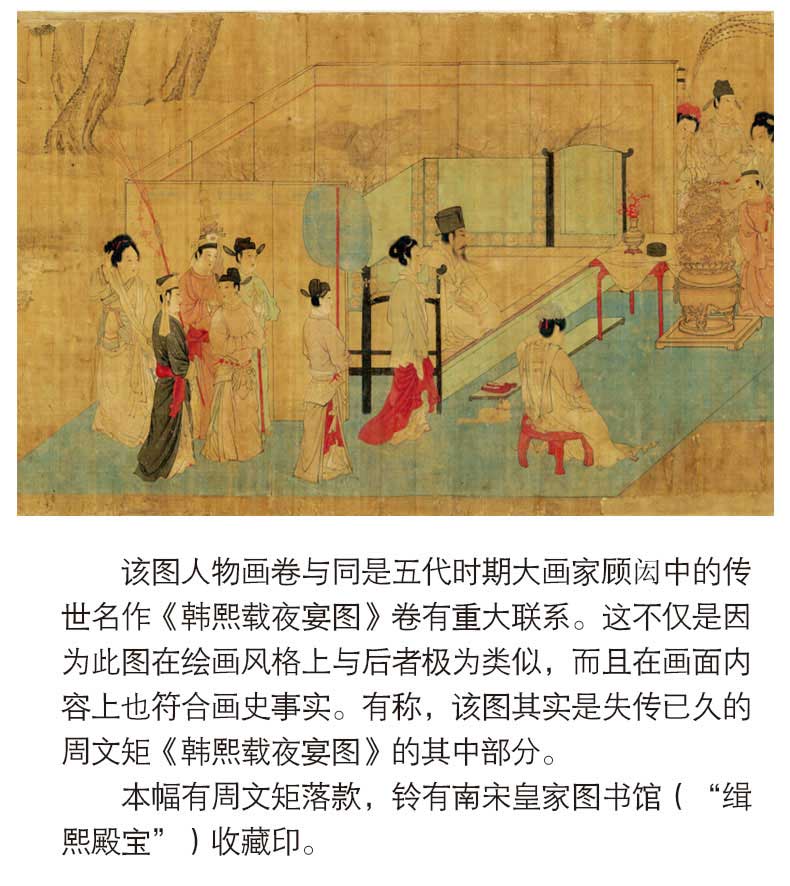 该图人物画卷与同是五代时期大画家顾闳中的传
世名作《韩熙载夜宴图》卷有重大联系。这不仅是因
为此图在绘画风格上与后者极为类似，而且在画面内
容上也符合画史事实。有称，该图其实是失传已久的
周文矩《韩熙载夜宴图》的其中部分。
本幅有周文矩落款，铃有南宋皇家图书馆（“缉
熙殿宝”）收藏印。